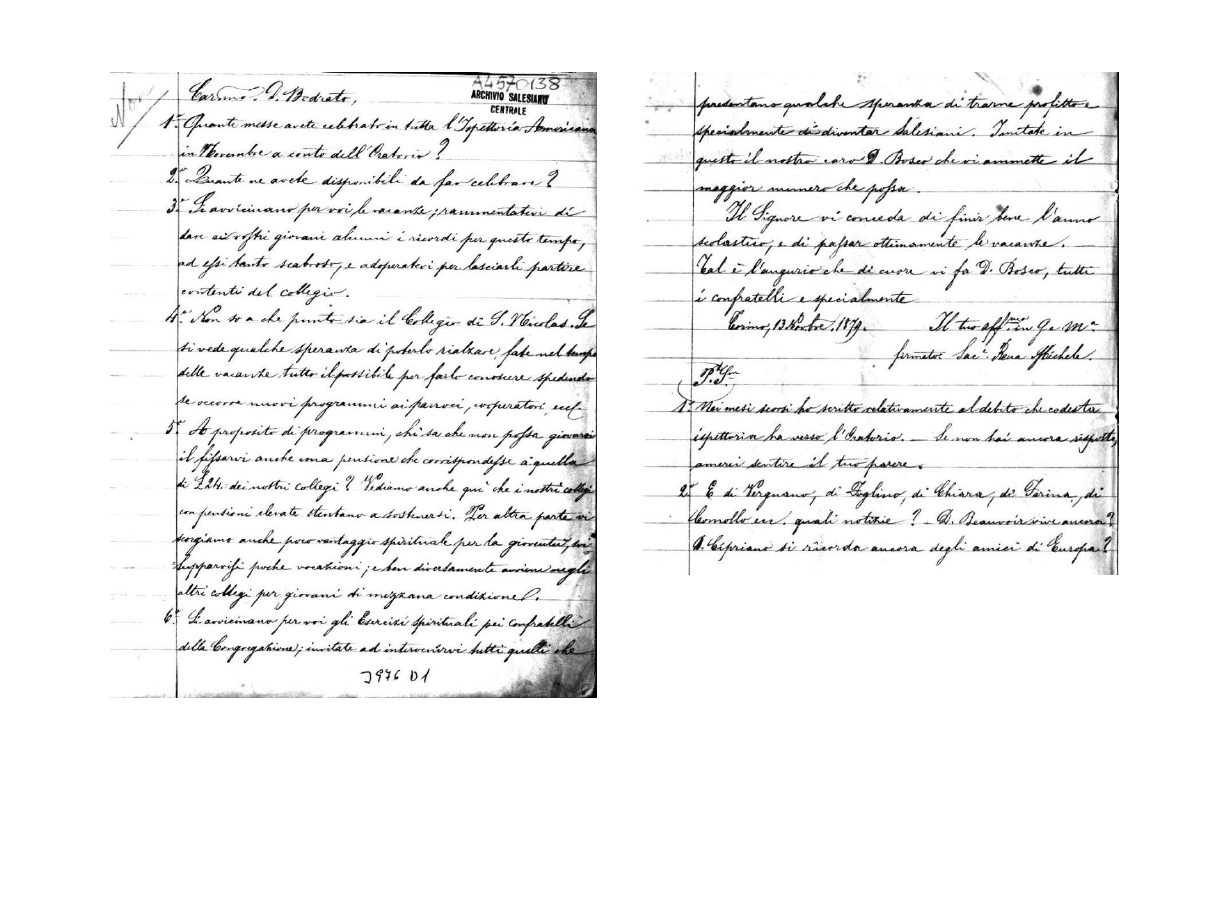 A4570138
ARCHIVIO SALESIANO
CENTRALE
Carmo. D. Bodrato,
1° Quante messe avete celebrato in tutta l'Ispettoria Americana
in Novembre a conto dell'Oratorio?
2° Quante ne avete disponibili da far celebrare?
3° Si avvicinano per voi le vacanze; rammentatevi di
dare ai vostri giovani alunni i ricordi per questo tempo,
ad essi tanto scabroso, e adoperatevi per lasciarli partire
contenti del collegio.
4° Non so a che punto sia il Collegio di S. Nicolas. Se
si vede qualche speranza di poterlo rialzare, fate nel tempo
delle vacanze tutto il possibile per farlo conoscere spedendo
se occorre nuovi programmi ai parroci, cooperatori ecc.
5° A proposito di programmi, chi sa che non possa giovarvi
il fissarvi anche una pensione che corrispondesse a quella
di £24. dei nostri collegi? Vediamo anche qui che i nostri collegi
con pensioni elevate stentano a sostenersi. Per altra parte vi
scorgiamo anche poco vantaggio spirituale per la gioventù,
poche vocazioni; e ben diversamente avviene negli
altri collegi per giovani di mezzana condizione.
6° Si avvicinano per voi gli Esercizi spirituali pei confratelli
della Congregazione; invitate ad intervenirvi tutti quelli che
J976 D1
presentano qualche speranza di trarne profitto e
specialmente di diventar Salesiani. Imitate in
questo il nostro caro D. Bosco che vi ammette il
maggior numero che possa.
Il Signore vi conceda di finir bene l'anno
scolastico, e di passar ottimamente le vacanze.
Tal è l'augurio che di cuore vi fa D. Bosco, tutti
i confratelli e specialmente
Torino, 13 Nbre. 1879. Il tuo affmo in G. e Ma
firmato: Sac. Rua Michele.
1° Nei mesi scorsi ho scritto relativamente al debito che codesta
ispettoria ha verso l'Oratorio. — Se non hai ancora risposto,
amerei sentire il tuo parere.
2° E di Vergnano, di Foglino, di Chiara, di Farina, di
Comollo ecc. quali notizie? — D. Beauvoir vive ancora?
D. Cipriano si ricorda ancora degli amici di Europa?